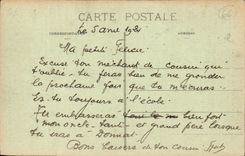 CARTE POSTALE
Le 5 avril 1921
Ma petite
Excuse ton méchant de cousin qui
t'oublie. tu feras bien de me gronder
la prochaine fois que tu m'écriras
Es tu toujours à l'école
Tu embrasseras bien fort
mon oncle tante et grand père lorsque
tu iras à Donnat
Bons baisers de ton cousin